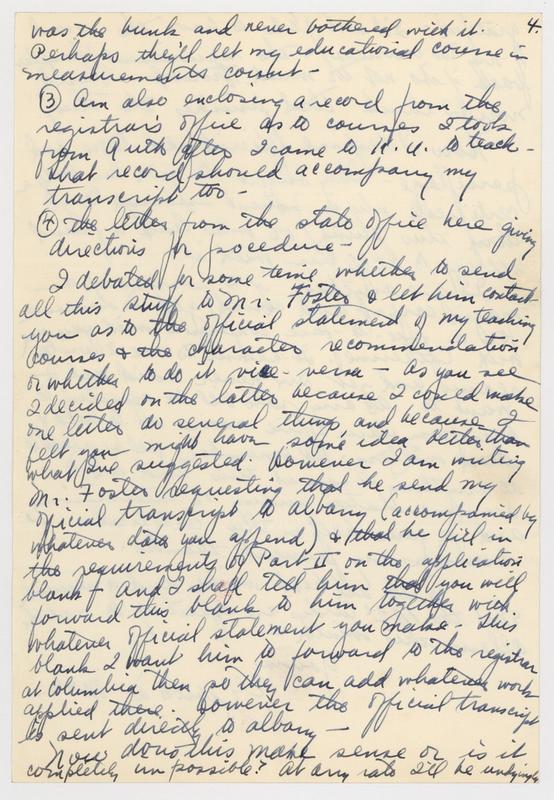 4.
was the bunk and never bothered with it.
Perhaps they'll let my educational course in
measurements count -
③ Am also enclosing a record from the
registrar's office as to courses I took
from Auth after I came to K. U. to teach -
that record should accompany my
transcript too -
④ the letter from the state office here giving
directions for procedure -
I debated for some time whether to send
all this stuff to Mr. Foster & let him contact
you as to the official statement of my teaching
courses & the character recommendation
or whether to do it vice-versa - As you see
I decided on the latter because I could make
one letter do several things and because I
felt you might have some idea better than
what I've suggested. However I am writing
Mr. Foster requesting that he send my
official transcript to Albany (accompanied by
whatever data you append) & that he fill in
the requirements of Part II on the application
blank - And I shall tell him that you will
forward this blank to him together with
whatever official statement you make - This
blank I want him to forward to the registrar
at Columbia then so they can add whatever work
applied there. However the official transcript
is sent directly to Albany -
Now does this make sense or is it
completely impossible? At any rate I'll be undyingly